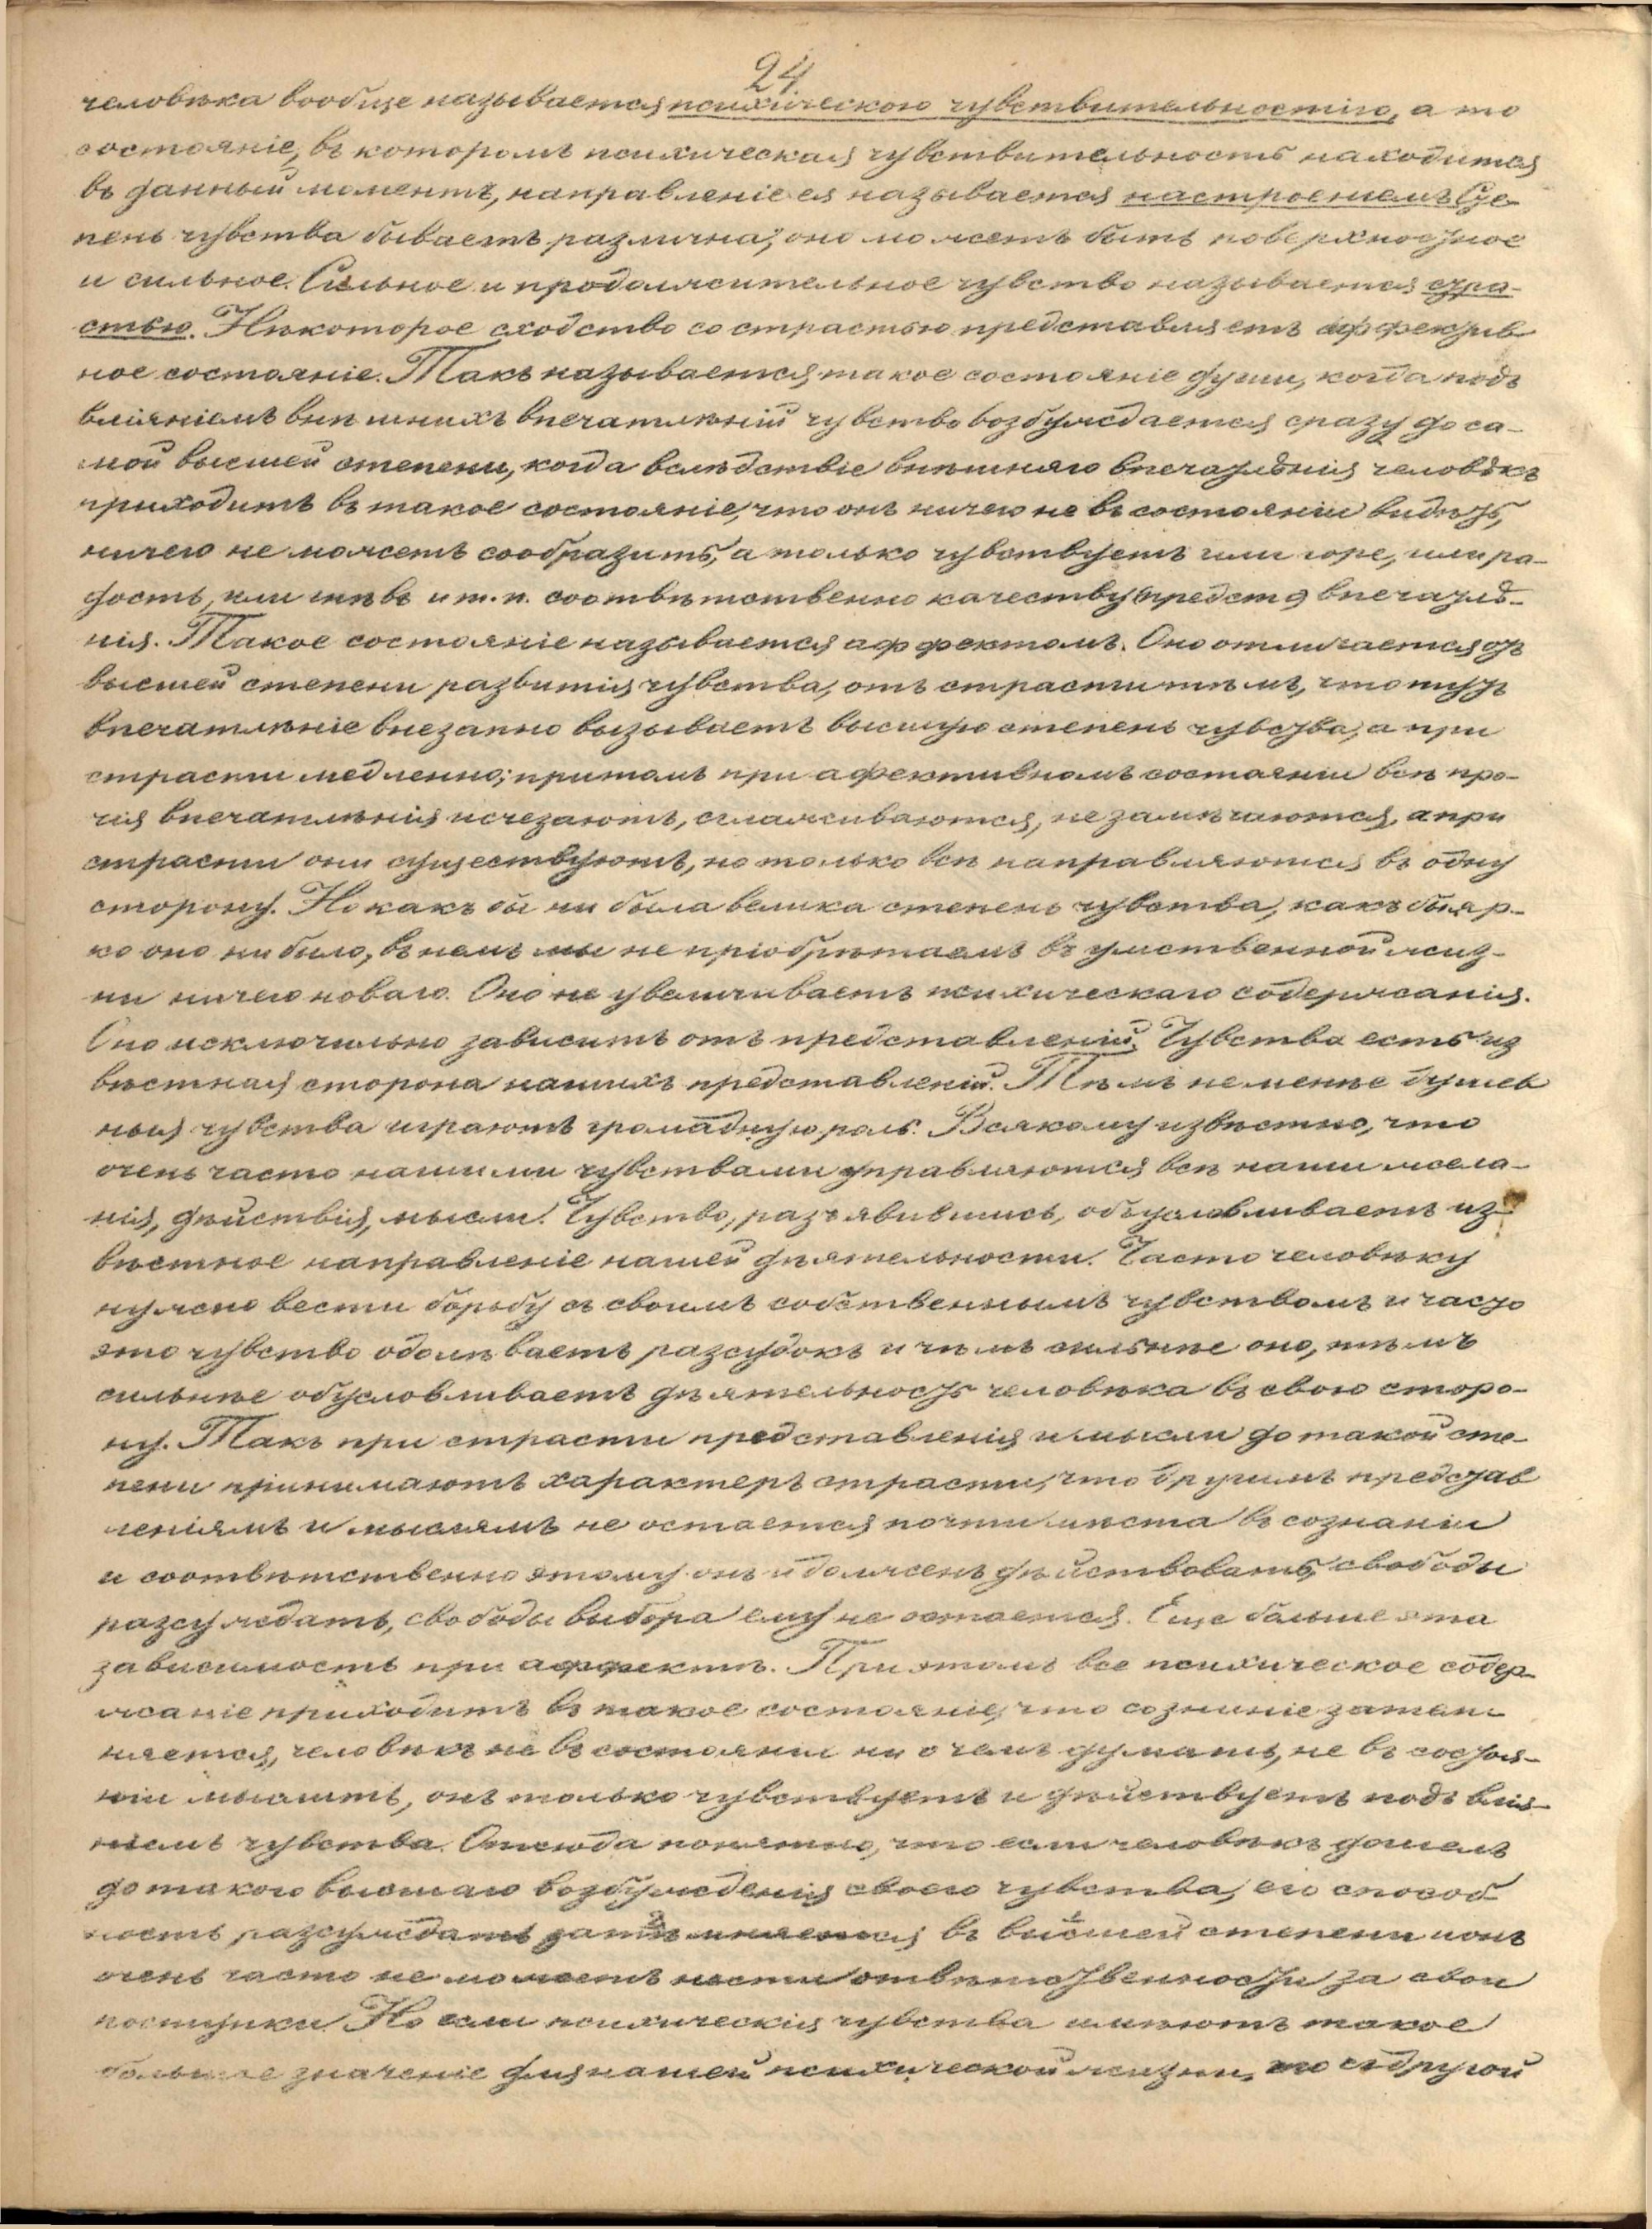 24.
человѣка вообще называется психическою чувствительностію, а то
состояніе, въ которомъ психическая чувствительность находится
въ данный моментъ, направленіе ея называется настроеніемъ. Сте-
пень чувства бываетъ различна, оно можетъ быть поверхностное
и сильное. Сильное и продолжительное чувство называется стра-
стью. Нѣкоторое сходство со страстью представляетъ аффектив
ное состояніе. Такъ называется такое состояніе души, когда подъ
вліяніемъ внѣшнихъ впечатлѣній чувство возбуждается сразу до са-
мой высшей степени, когда вслѣдствіе внѣшняго впечатлѣнія человѣкъ
приходитъ въ такое состояніе, что онъ ничего не въ состояніи видѣть,
ничего не можетъ сообразить, а только чувствуетъ или горе, или ра-
дость, или гнѣвъ и т. п. соотвѣтственно качеству предст впечатлѣ-
нія. Такое состояніе называется аффектомъ. Оно отличается отъ
высшей степени развитія чувства, отъ страсти тѣмъ, что тутъ
впечатлѣніе внезапно вызываетъ высшую степень чувства, а при
страсти медленно; притомъ при афективномъ состояніи всѣ про-
чія впечатлѣнія исчезаютъ, сглаживаются, не замѣчаются, а при
страсти они существуютъ, но только всѣ направляются въ одну
сторону. Но какъ бы ни была велика степень чувства, какъ бы яр-
ко оно ни было, въ немъ мы не пріобрѣтаемъ въ умственной жиз-
ни ничего новаго. Оно не увеличиваетъ психическаго содержанія.
Оно исключильно зависитъ отъ представленій. Чувства есть из
вѣстная сторона нашихъ представленій. Тѣмъ не менѣе душев
ныя чувства играютъ громадную роль. Всякому извѣстно, что
очень часто нашими чувствами управляются всѣ наши жела-
нія, дѣйствія, мысли. Чувство, разъ явившись, обусловливаетъ из
вѣстное направленіе нашей дѣятельности. Часто человѣку
нужно вести борьбу съ своимъ собственнымъ чувствомъ и часто
это чувство одолѣваетъ разсудокъ и чѣмъ сильнѣе оно, тѣмъ
сильнѣе обусловливаетъ дѣятельность человѣка въ свою сторо-
ну. Такъ при страсти представленія и мысли до такой сте-
пени принимаютъ характеръ страсти, что другимъ представ
леніямъ и мыслямъ не остается почти мѣста въ сознаніи
и соотвѣтственно этому онъ и долженъ дѣйствовать, свободы
разсуждать, свободы выбора ему не остается. Еще больше эта
зависимость при аффектѣ. При этомъ все психическое содер-
жаніе приходитъ въ такое состояніе, что сознаніе затем-
няется, человѣкъ не въ состояніи ни о чемъ думать, не въ состоя-
ніи мыслить, онъ только чувствуетъ и дѣйствуетъ подъ влія-
ніемъ чувства. Отсюда понятно, что если человѣкъ дошелъ
до такого высшаго возбужденія своего чувства, его способ
ность разсуждать затемняется въ высшей степени и онъ
очень часто не можетъ нести отвѣтственности за свои
поступки. Но если психическія чувства имѣютъ такое
большое значеніе для нашей психической жизни, то съ другой